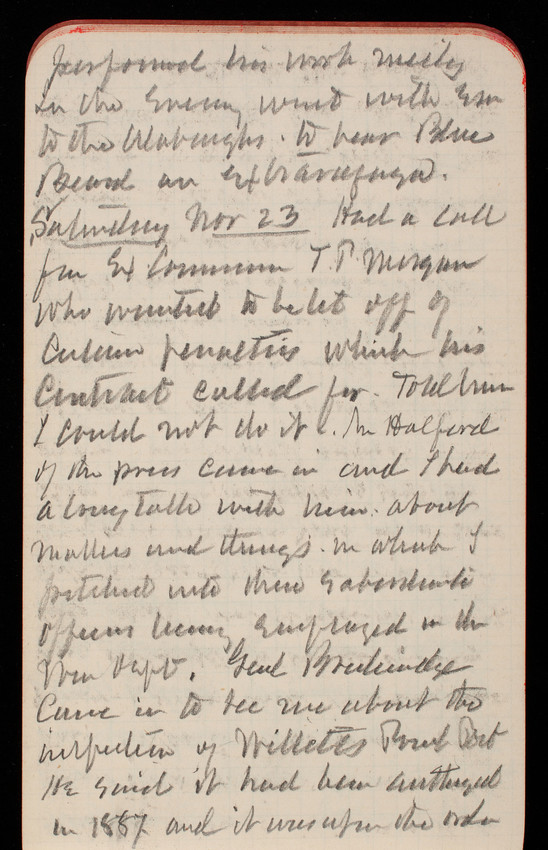 performed his work nicely
In the Evening went with Em
to the Albaughs. to hear Blue
Beard an Extravaganza.
Saturday Nov 23 Had a call
from Ex Commr T. P. Morgan
who wanted to be let off of
Certain penalties which his
Contract called for. Told him
I could not do it. Mr Halford
of the press came in and I had
a long talk with him. about
matters and things. in which I
pitched into these Subordinate
officers being employed in the
War Dept. Genl Breckinridge
Came in to see me about the
inspection of Willetts Point Bat
He said it had been
in 1887 and it was upon the order